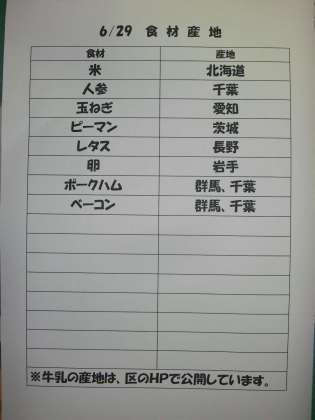 6/29 食材産地
食材 産地
米 北海道
人参 千葉
玉ねぎ 愛知
ピーマン 茨城
レタス 長野
卵 岩手
ポークハム 群馬、千葉
ベーコン 群馬、千葉
※牛乳の産地は、区のHPで公開しています。